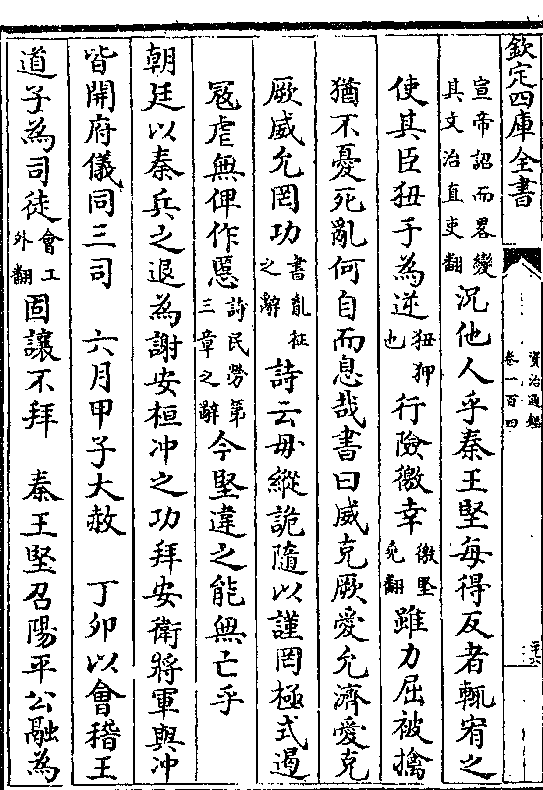 欽定四庫全書
資治通鑑
卷一百四
宣帝詔而畧變其文治直吏翻況他人乎秦王堅每得反者輒宥之
使其臣狃于為逆狃狎也行險徼幸徼堅堯翻雖力屈被擒
猶不憂死亂何自而息哉書曰威克厥愛允濟愛克
厥威允罔功書胤征之辭詩云毋縱詭隨以謹罔極式遏
寇虐無俾作慝詩民勞第三章之辭今堅違之能無亡乎
朝廷以秦兵之退為謝安桓沖之功拜安衛將軍與沖
皆開府儀同三司　六月甲子大赦　丁卯以會稽王
道子為司徒會工外翻固讓不拜　秦王堅召陽平公融為